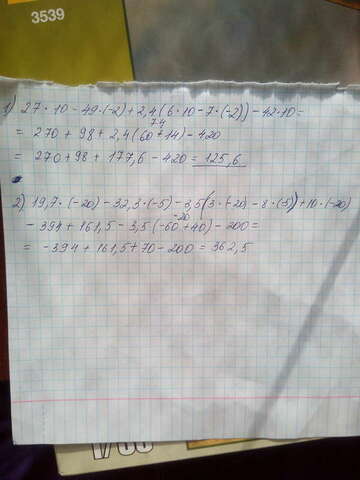 3539
1) 27 · 10 - 49 · (-2) + 2,4 (6 · 10 - 7 · (-2)) - 42 · 10 =
74
= 270 + 98 + 2,4 (60 + 14) - 420
= 270 + 98 + 177,6 - 420 = 125,6
2) 19,7 · (-20) - 32,3 · (-5) - 3,5 (3 · (-20) - 8 · (-5)) + 10 · (-20)
-20
- 394 + 161,5 - 3,5 (-60 + 40) - 200 =
= -394 + 161,5 + 70 - 200 = 362,5